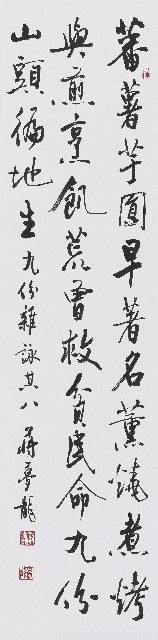 蕃薯芋圓早著名薰燒煮烤
與煎烹飢荒曾救貧民命九份
山頭徧地生九份雜詠其八 蔣夢龍